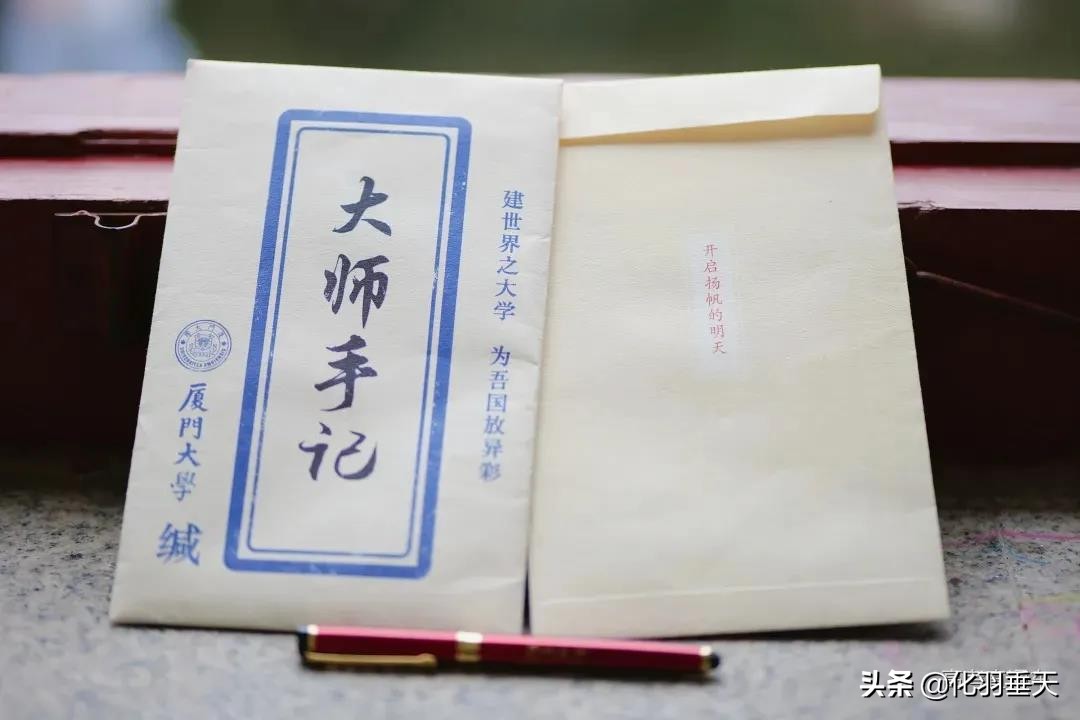 建世界之大学 为吾国放异彩
大师手记
厦門大學 缄
开启扬帆的明天
头条 @化羽垂天